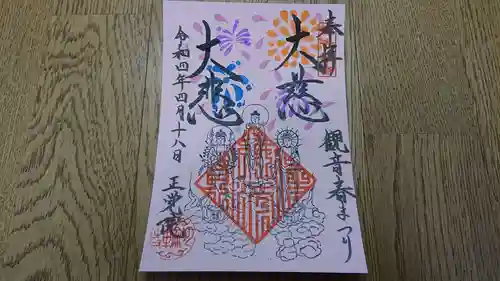 奉拝
観音春まつり
大慈
大悲
令和四年四月十八日
正覚院